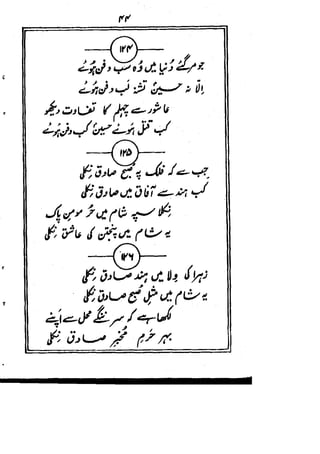 ۴۴
۱۲۴
جو مر گئے دنیا میں وہ سب دفن ہوئے
الّا نہ حسینؑ تشنہ لب دفن ہوئے
عاشور سے چہلم کا تفاوت دیکھو
کب قتل ہوئے حسینؑ کب دفن ہوئے
۱۲۵
جب سے کہ فلک پہ صبح صادق نکلی
کب ہند سے آفاق میں صادق نکلی
نکلا سپہ شام میں حر مومن پاک
یہ شام میں پنجتن کی عاشق نکلی
۱۲۶
زہرا کی ولا میں ہند صادق نکلی
یہ شام میں مثل صبح صادق نکلی
لکھا ہے کہ سر ننگے محل سے اپنے
بہر حرم مخبر صادق نکلی